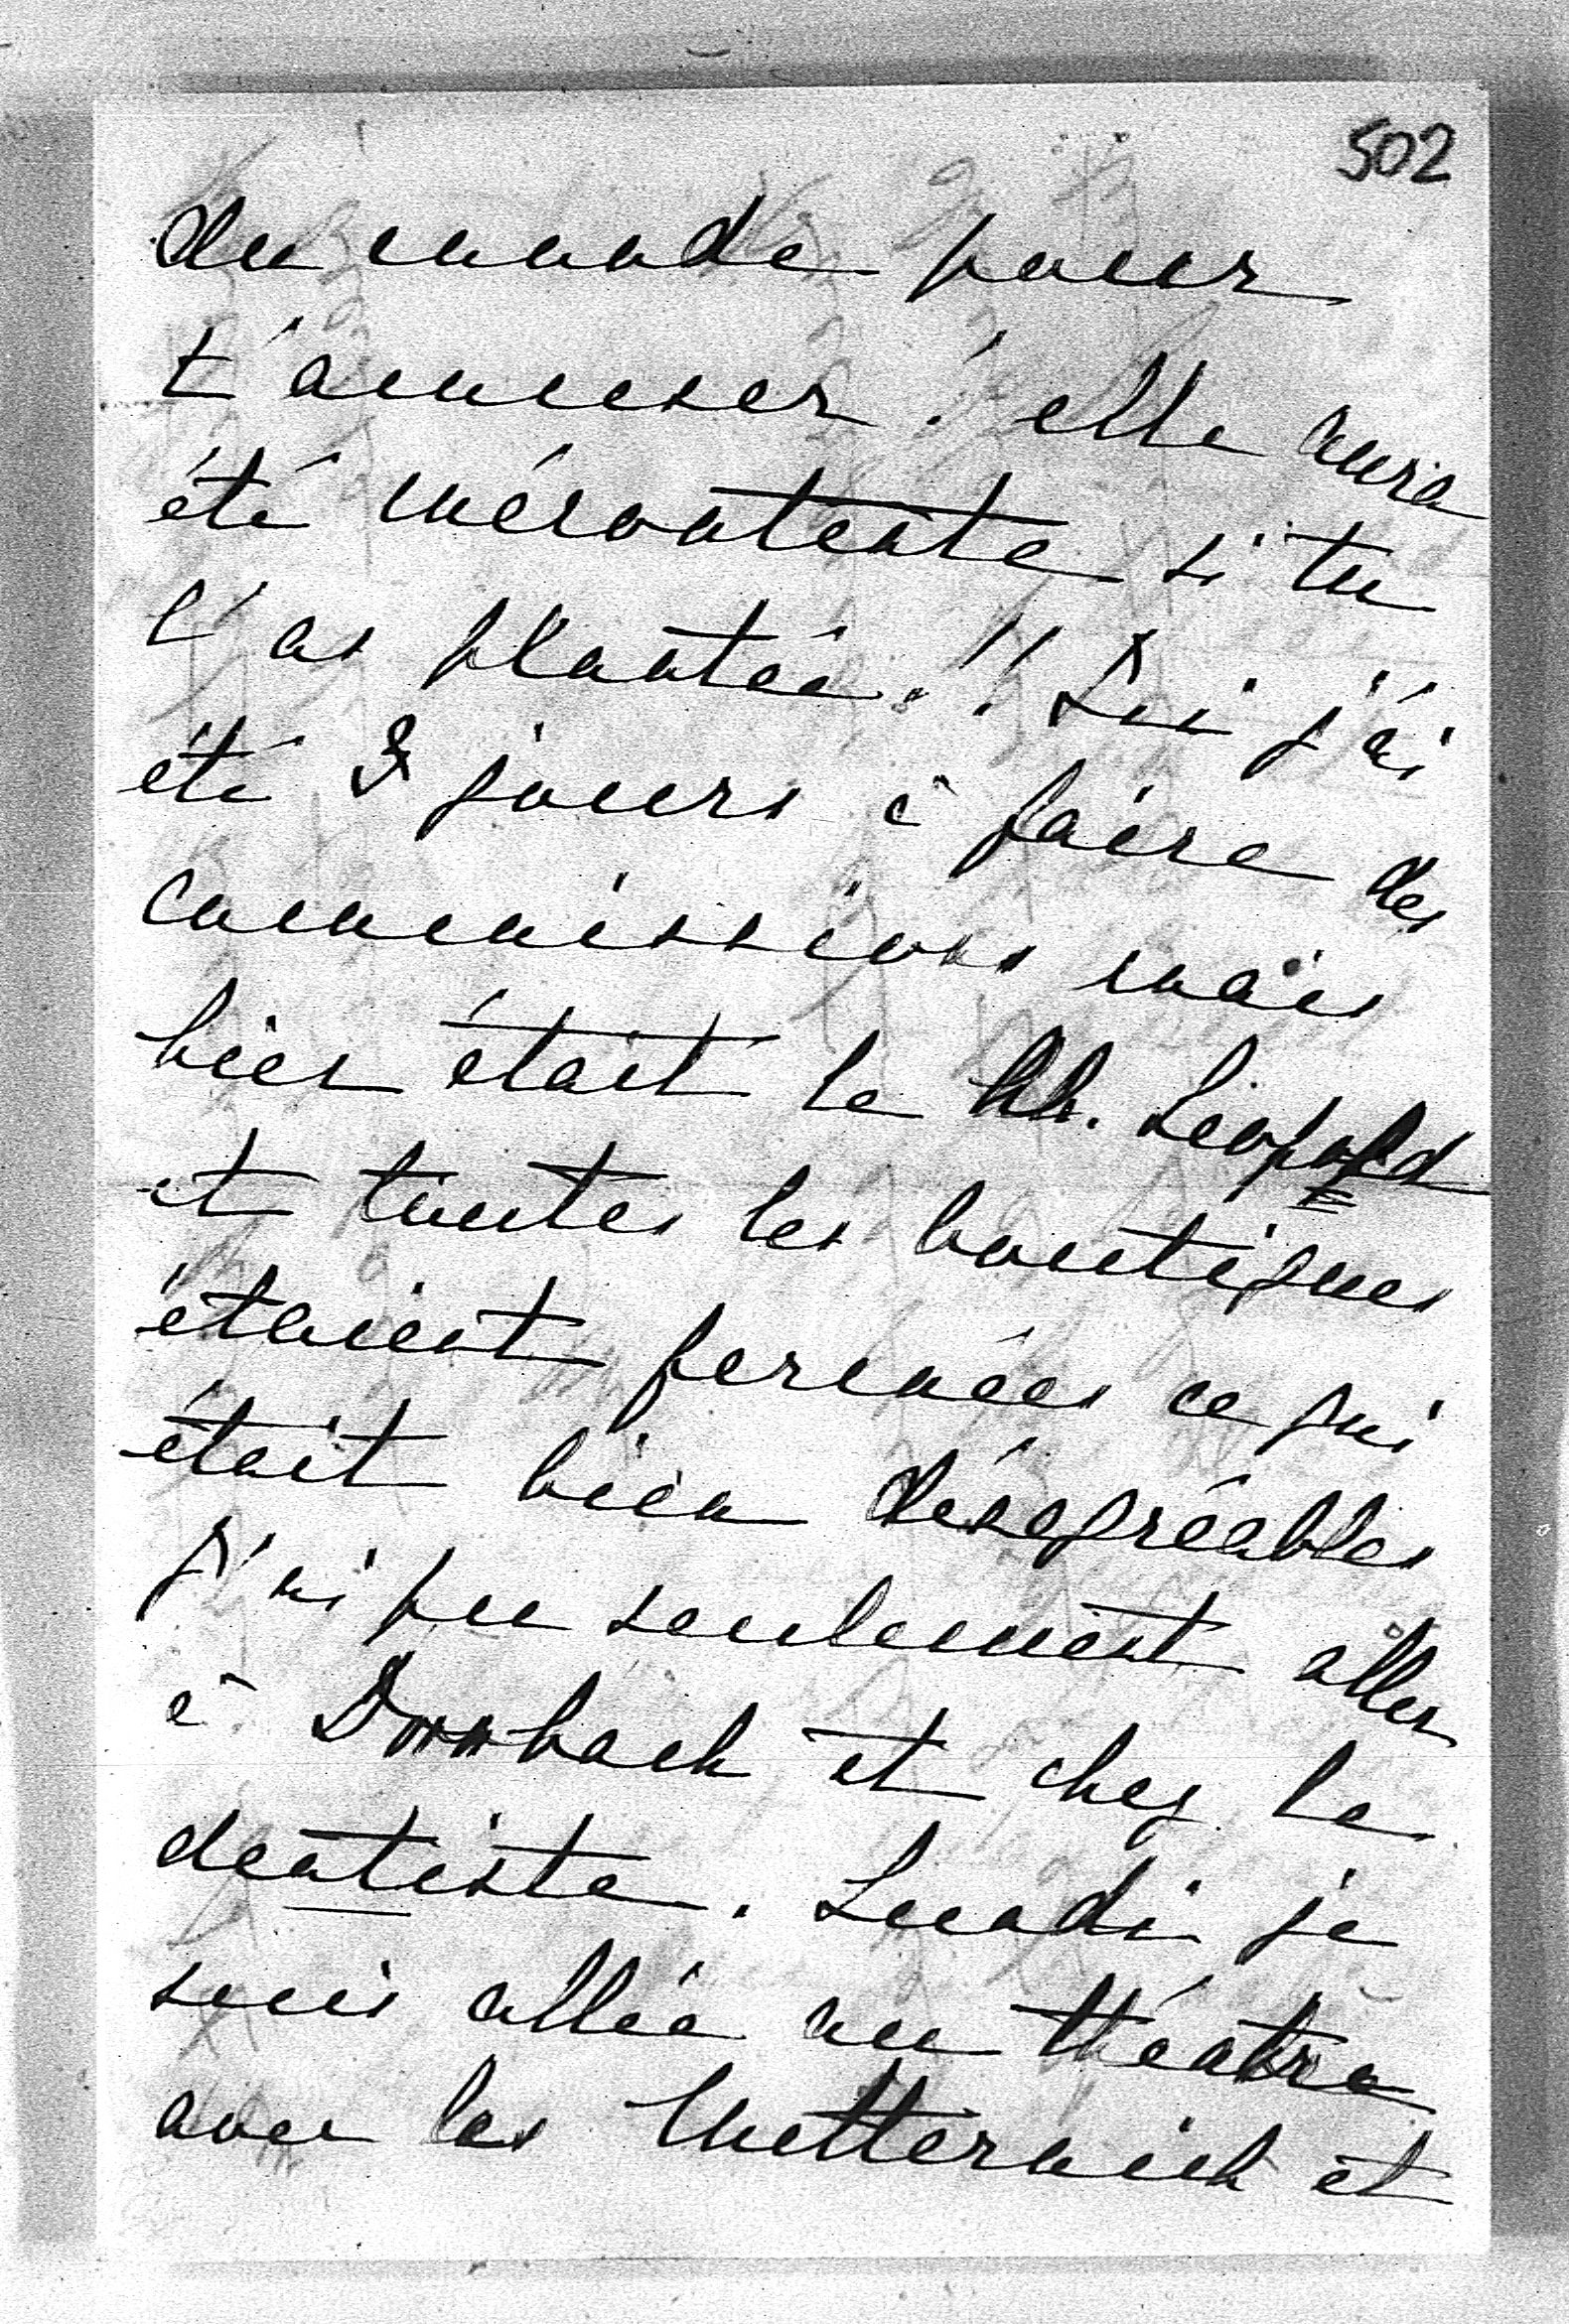 502
du monde pour
t'amuser! elle aura
été mécontente si tu
l'as plantée!! Lui j'ai
été 3 jours à faire des
commissions mais
hier était le hh. Leopold
et toutes les boutiques
étaient fermées ce qui
était bien désagréables
j'ai pu seulement aller
à Dornbach et chez le
dentiste. Lundi je
suis allée au théatre
avec les Metternich et